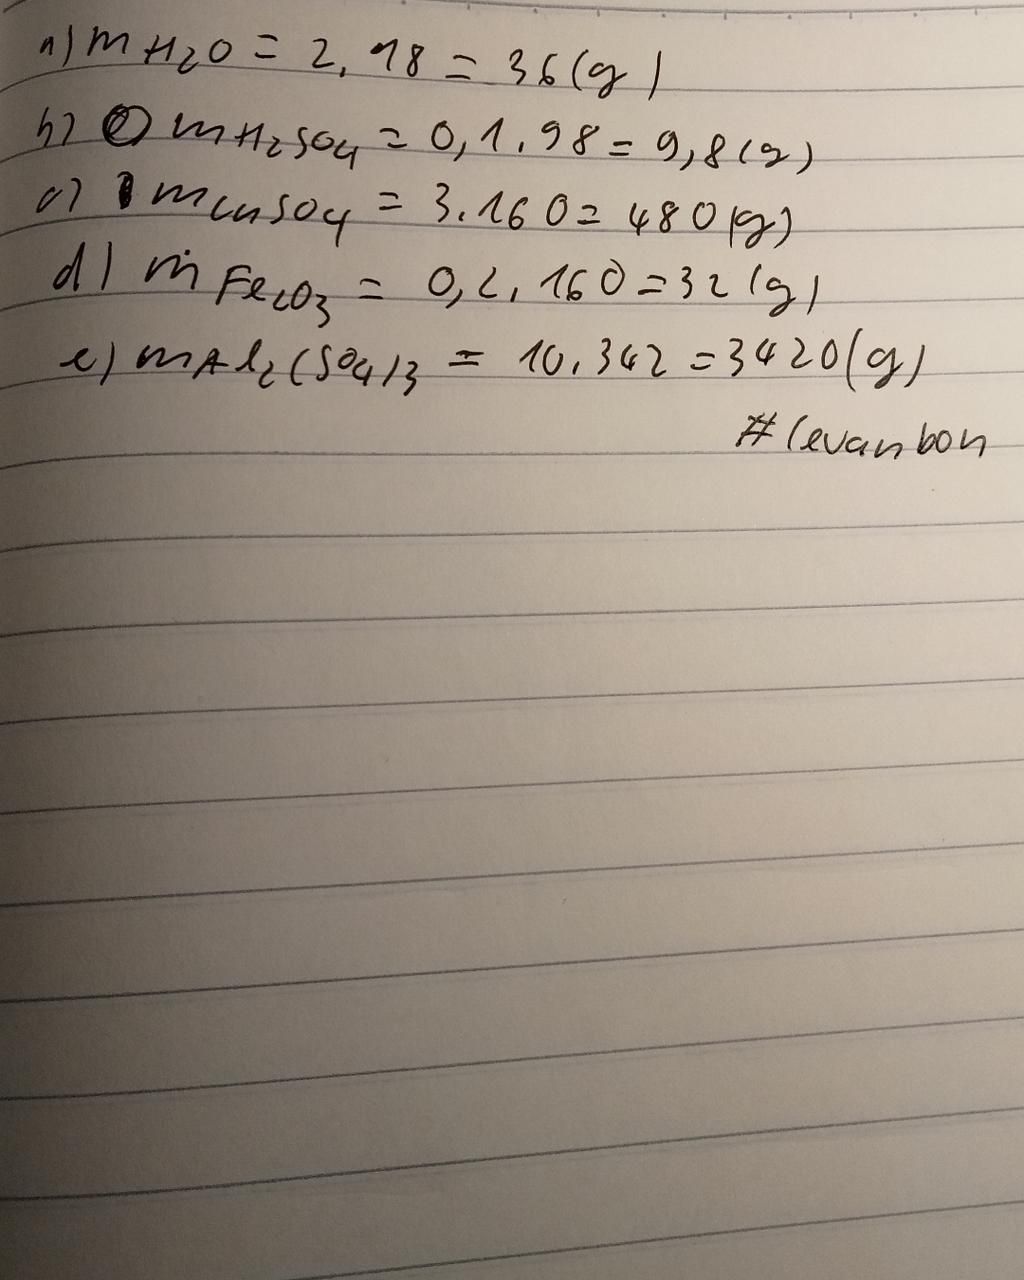 a) mH2O = 2.18 = 36(g)
b) mH2SO4 = 0,1.98 = 9,8(g)
c) mCuSO4 = 3.160 = 480(g)
d) mFe2O3 = 0,2.160 = 32(g)
e) mAl2(SO4)3 = 10.342 = 3420(g)
#levanbon